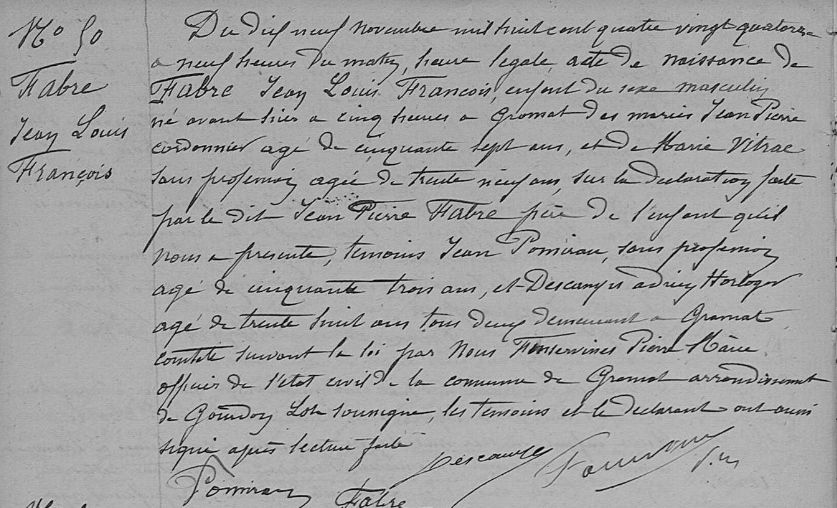 No 50
Fabre
Jean Louis
François
Du dix neuf novembre mil huit cent quatre vingt quatorze
a neuf heures du matin, heure legale, acte de naissance de
Fabre Jean Louis François, enfant du sexe masculin
né avant hier a cinq heures a Gramat des mariés Jean Pierre
cordonnier agé de cinquante sept ans, et de Marie Vitrac
sans profession agée de trente neuf ans, sur la declaration faite
par le dit Jean Pierre Fabre père de l'enfant qu'il
nous a presenté, temoins Jean Pomirau, sans profession
agé de cinquante trois ans, et Descamps adrien Horloger
agé de trente huit ans tous deux demeurant a Gramat
constaté suivant la loi par Nous Pierre Maire
officier de l'etat civil de la commune de Gramat arrondissement
de Gourdon Lot soussigné, les temoins et le declarant ont aussi
signé après lecture faite
Descamps
Pomirau Fabre